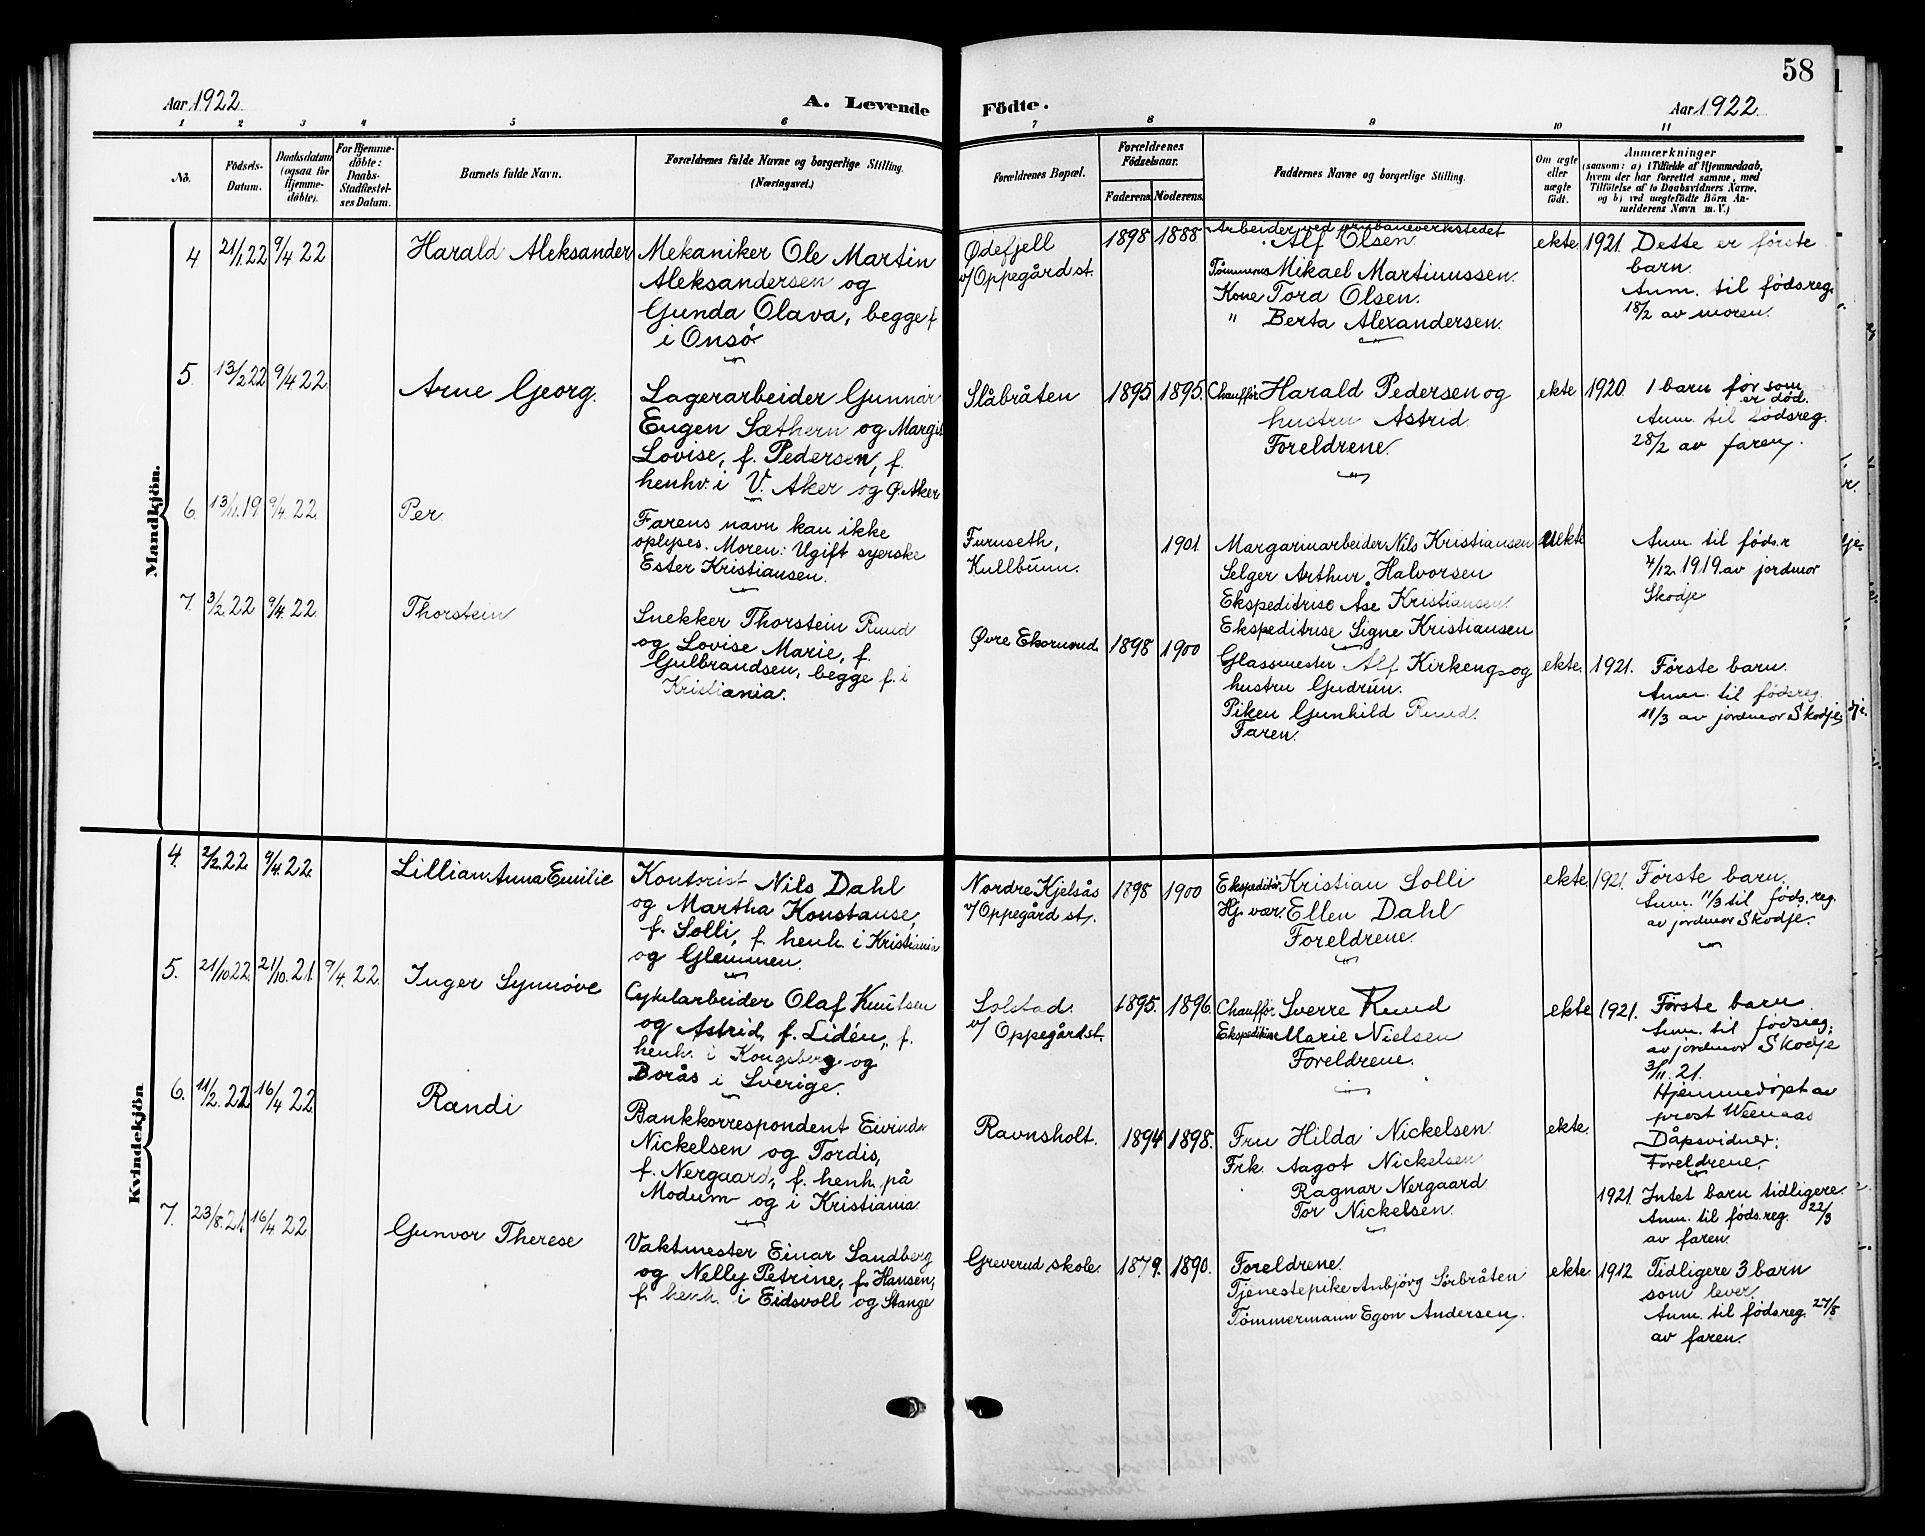 58
Aar 1922
A. Levende Födte.
Aar 1922.
1 2 3 4 5 6 7 8 9 10 11
No.
Födsels-
Datum.
Daabsdatum
(ogsaa for
Hjemme-
döbte).
For Hjemme-
döbte:
Daabs-
Stadfæstel-
ses Datum.
Barnets fulde Navn.
Forældrenes fulde Navne og borgerlige Stilling.
(Næringsvei.)
Forældrenes Bopæl.
Forældrenes
Födselsaar.
Faderens. Moderens.
Faddernes Navne og borgerlige Stilling.
Om ægte
eller
uægte
födt.
Anmærkninger
(saasom: a) i Tilfælde af Hjemmedaab,
hvem der har forrettet samme, med
Tilföielse af to Daabsvidners Navne.
og b) ved uægtefödte Börn An-
melderens Navn m. V.)
Mandkjön.
4 21/1 22 9/4 22 Harald Aleksander
Mekaniker Ole Martin
Aleksandersen og
Gunda Olava, begge f.
i Onsö
Ødefjell
v/Oppegård st.
1898 1888
Arbeider ved prisbaneverkstedet
Alf Olsen
Tömmerm Mikael Martinussen.
Kone Tora Olsen.
" Berta Alexandersen.
ekte 1921. Dette er förste
barn.
Anm. til födsreg.
18/2 av moren.
5. 13/2 22 9/4 22 Arne Georg.
Lagerarbeider Gunnar
Eugen Sæthern og Margit
Lovise, f. Pedersen, f.
henhv. i V. Aker og Ø. Aker
Slåbråten 1895 1895.
Chaufför Harald Pedersen og
hustru Astrid
Foreldrene.
ekte 1920. 1 barn før som
er död.
Anm. til födsreg.
28/2 av faren.
6. 13/11.19 9/4.22. Per
Farens navn kan ikke
oplyses. Moren: Ugift syerske
Ester Kristiansen.
Furuseth,
Kullbunn.
1901
Margarinarbeider Nils Kristiansen
Selger Arthur Halvorsen
Ekspeditrise Åse Kristiansen
Ekspeditrise Signe Kristiansen
uekte Anm til føds.r
4/12.1919.av jordmor
Skodje
7. 3/2 22 9/4.22. Thorstein
Snekker Thorstein Ruud
og Lovise Marie, f.
Gulbrandsen, begge f. i
Kristiania.
Øvre Ekornrud. 1898 1900
Glassmester Alf Kirkeng og
hustru Gudrun.
Piken Gunhild Ruud.
Faren.
ekte. 1921. Første barn.
Anm. til födsreg.
11/3 av jordmor Skodje
Kvindekjön
4. 2/2.22 9/4.22. Lillian Anna Emilie
Kontorist Nils Dahl
og Martha Konstanse,
f. Solli, f. henh. i Kristiania
og Glemmen.
Nordre Kjelsås
v/Oppegård st.
1898 1900
Ekspeditör Kristian Solli
Hj. vær. Ellen Dahl
Foreldrene.
ekte. 1921. Første barn.
Anm. 11/3 til føds.reg.
av jordmor Skodje.
5. 21/10 22. 21/10.21. 9/4.22. Inger Synnøve
Cykelarbeider Olaf Knutsen
og Astrid, f. Lidén, f.
henh. i Kongsberg og
Borås i Sverige.
Solstad.
v/ Oppegård st.
1895. 1896.
Chauffør. Sverre Ruud
Ekspeditrise Marie Nielsen
Foreldrene.
ekte 1921. Første barn
Anm. til fødsreg.
av jordmor Skodje
3/11.21.
Hjemmedöpt av
prest Weenaas
Dåpsvidner:
Foreldrene.
6. 11/2.22 16/4 22 Randi
Bankkorrespondent Eivind
Nickelsen og Tordis,
f. Nergaard, f. henh. på
Modum og i Kristiania.
Ravnsholt. 1894 1898.
Fru Hilda Nickelsen.
Frk. Aagot Nickelsen
Ragnar Nergaard
Tor Nickelsen.
ekte.
1921. Intet barn tidligere.
Anm. til føds.reg. 22/3
av faren.
7. 23/8.21. 16/4 22 Gunvor Therese
Vaktmester Einar Sandberg
og Nelly Petrine, f. Hansen,
f. henh. i Eidsvoll og Stange
Greverud skole. 1879. 1890.
Foreldrene.
Tjenestepike Anbjørg Sørbråten
Tømmermann Egon Andersen.
ekte. 1912 Tidligere 3 barn
som lever.
Anm. til fødsreg. 27/8
av faren.